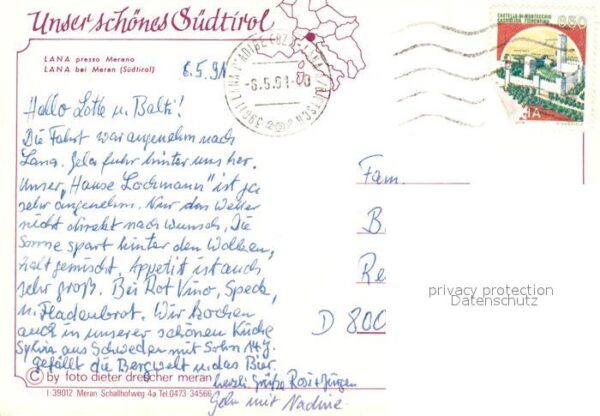 Unser schönes Südtirol
LANA presso Merano
LANA bei Meran (Südtirol)
6.5.91
-6.5.91-
850
CASTELLO DI MONTECCHIO
CASTIGLION FIORENTINO
Hallo Lotte u. Balti!
Die Fahrt war angenehm nach
Lana. fuhr hinter uns her.
Unser „Hause Lochmann" ist ja
sehr angenehm. Nur das Wetter
nicht direkt nach Wunsch, Die
Sonne spart hinter den Wolken,
halt gemischt. Appetit ist auch
sehr groß. Bei Rot Vino, Speck,
u. Fladenbrot. Wir kochen
auch in unserer schönen Küche
Sylvia aus Schweden mit Sohn 14 J.
gefällt die Bergwelt u. das Bier.
herzl. Grüße Rosi + Jürgen
mit Nadine.
Fam.
B
Re
D 800
privacy protection
Datenschutz
© by foto dieter drescher meran
I-39012 Meran Schallhofweg 4a Tel.0473-34566